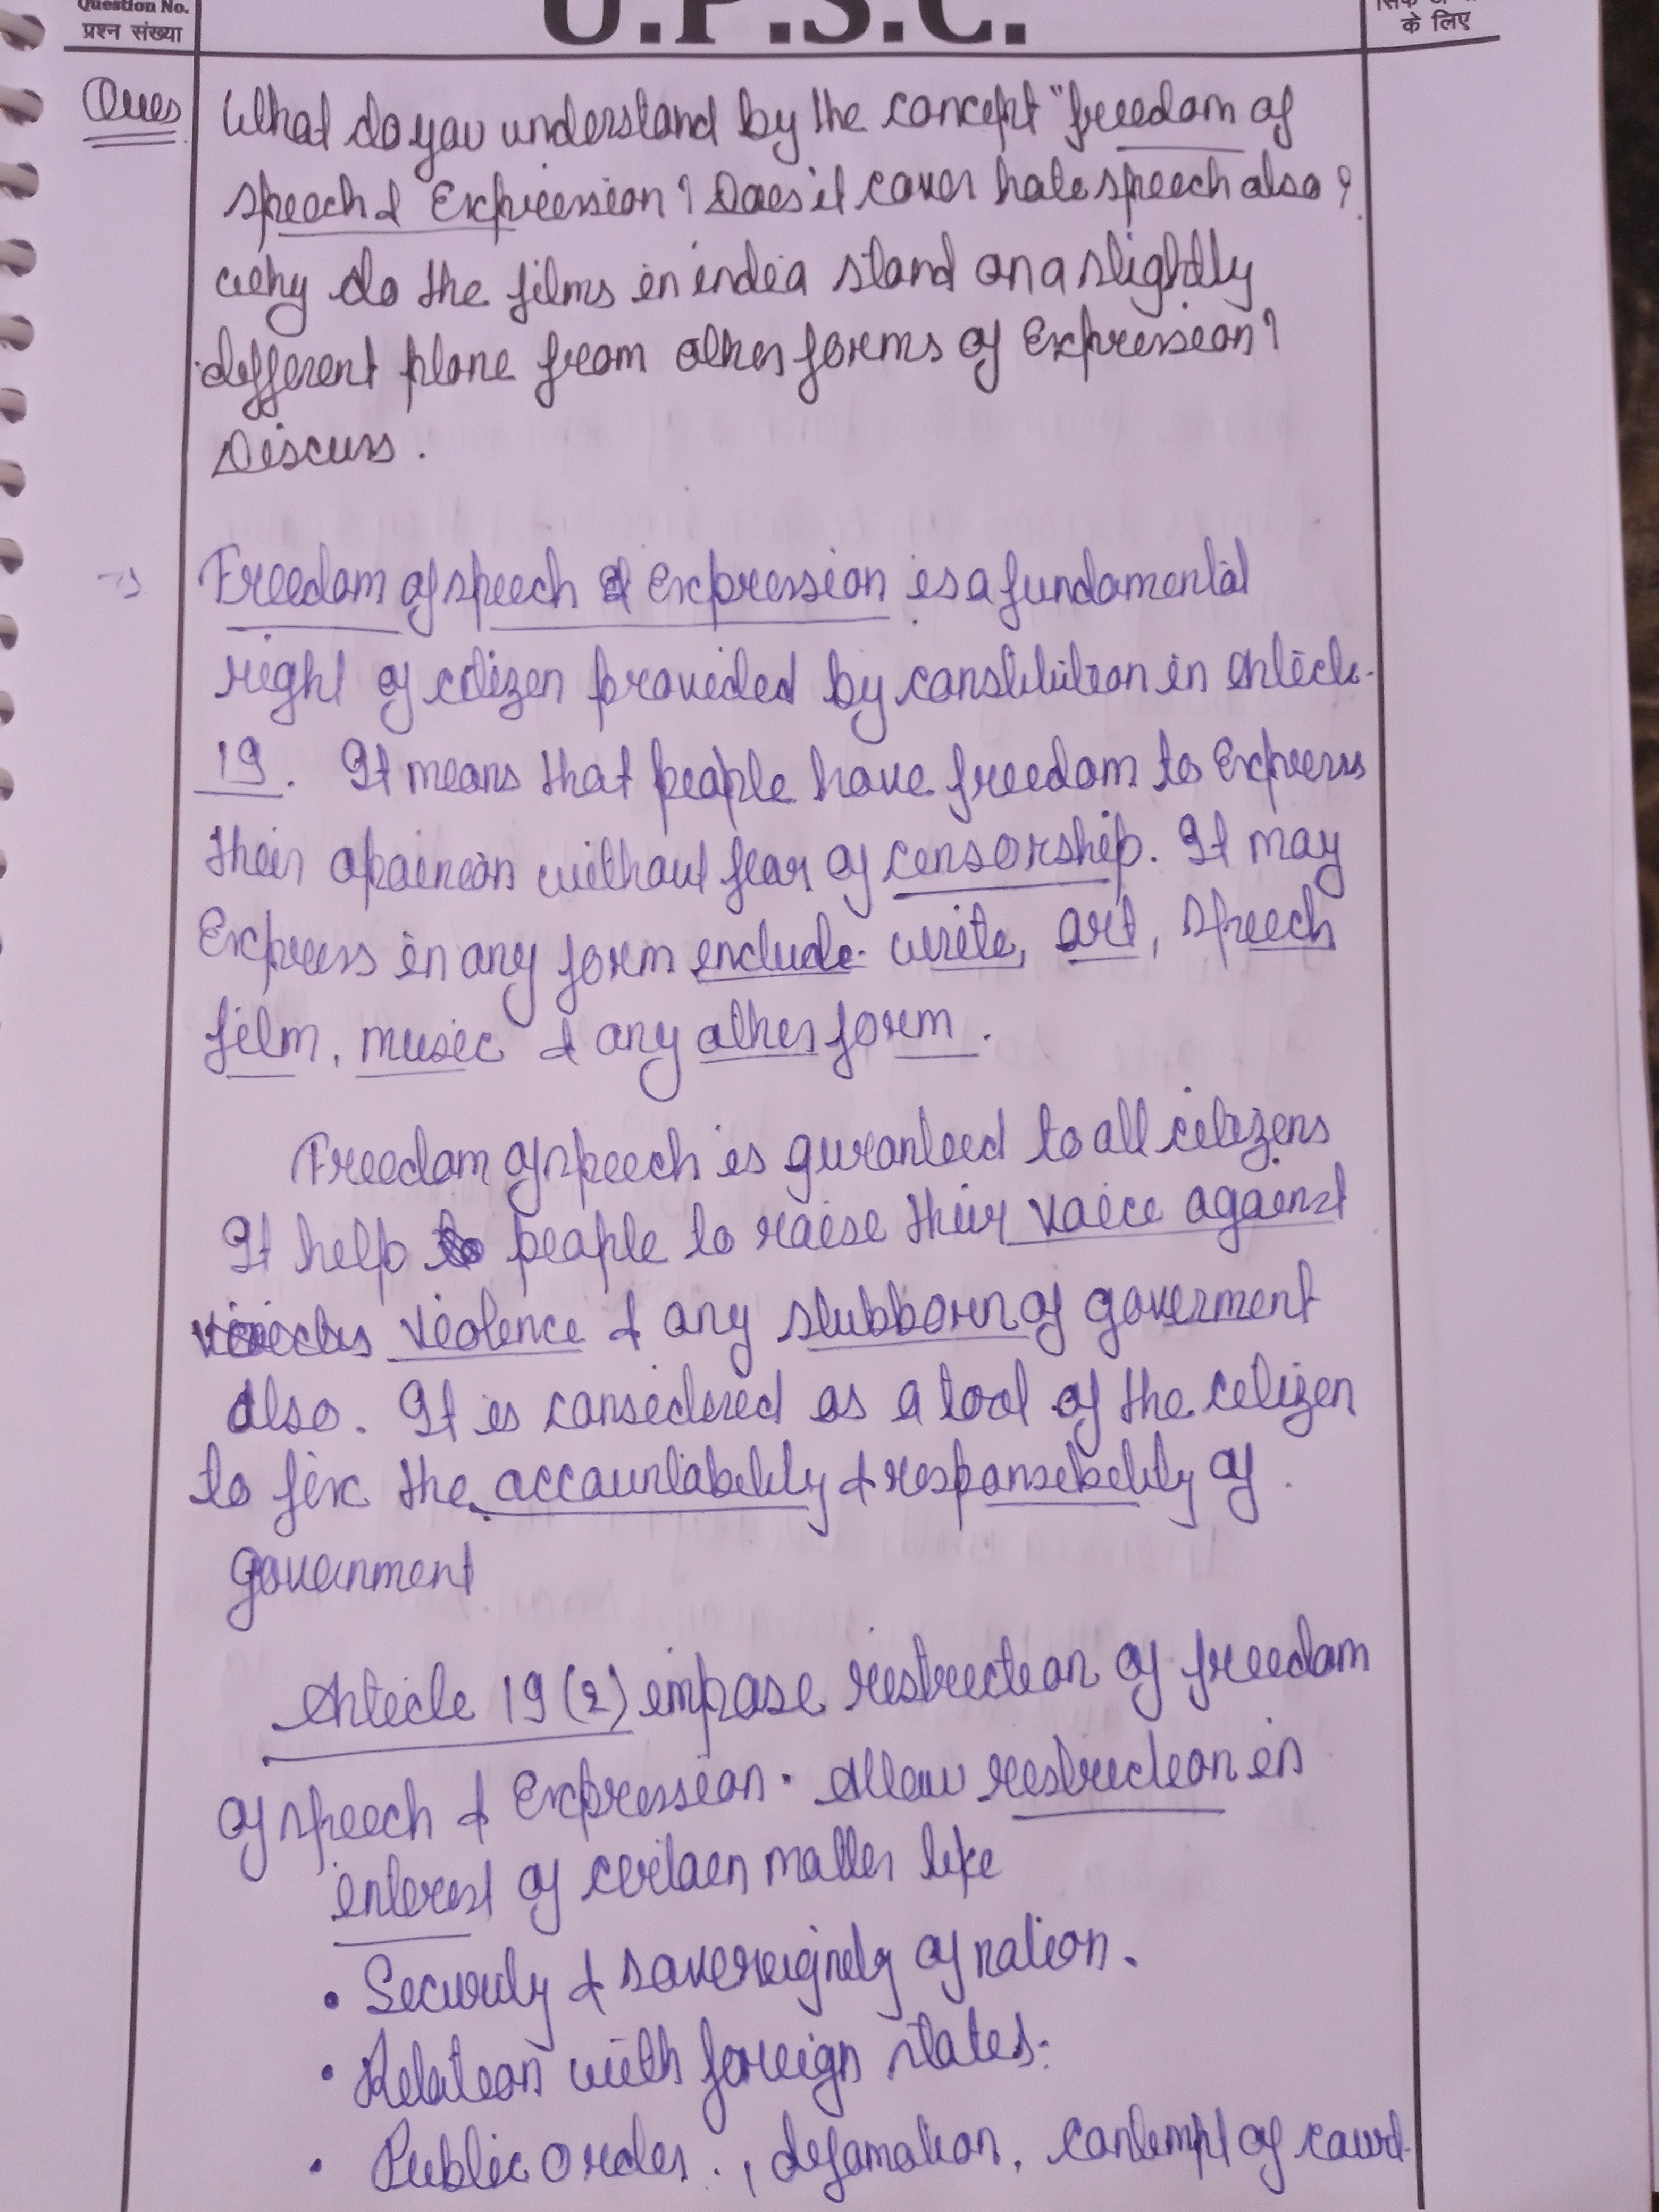 Question No.
प्रश्न संख्या
U.P.S.C.
के लिए
Ques
What do you understand by the concept "freedom of
speech & Expression? Does it cover hate speech also?
why do the films in india stand on a slightly
different plane from other forms of Expression?
Discuss.
Freedom of speech & Expression is a fundamental
right of citizen provided by constitution in Article
19. It means that people have freedom to Express
their opainion without fear of censorship. It may
Express in any form include write, art, speech
film, music & any other form.
Freedom of speech is guranteed to all citizens
It help people to raise their voice against
violence & any stubborn of goverment
also. It is considered as a tool of the citizen
to fix the accountability & responsibility of
government
Article 19(2) impose restriction of freedom
of speech & Expression. Allow restriction in
interest of certain matter like
• Security & sovereignety of nation.
• Relation with foreign states.
• Public order, defamation, contempt of court